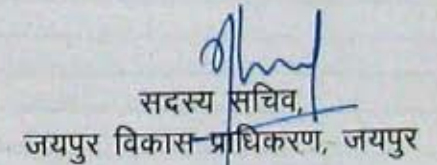 सदस्य सचिव,
जयपुर विकास प्राधिकरण, जयपुर